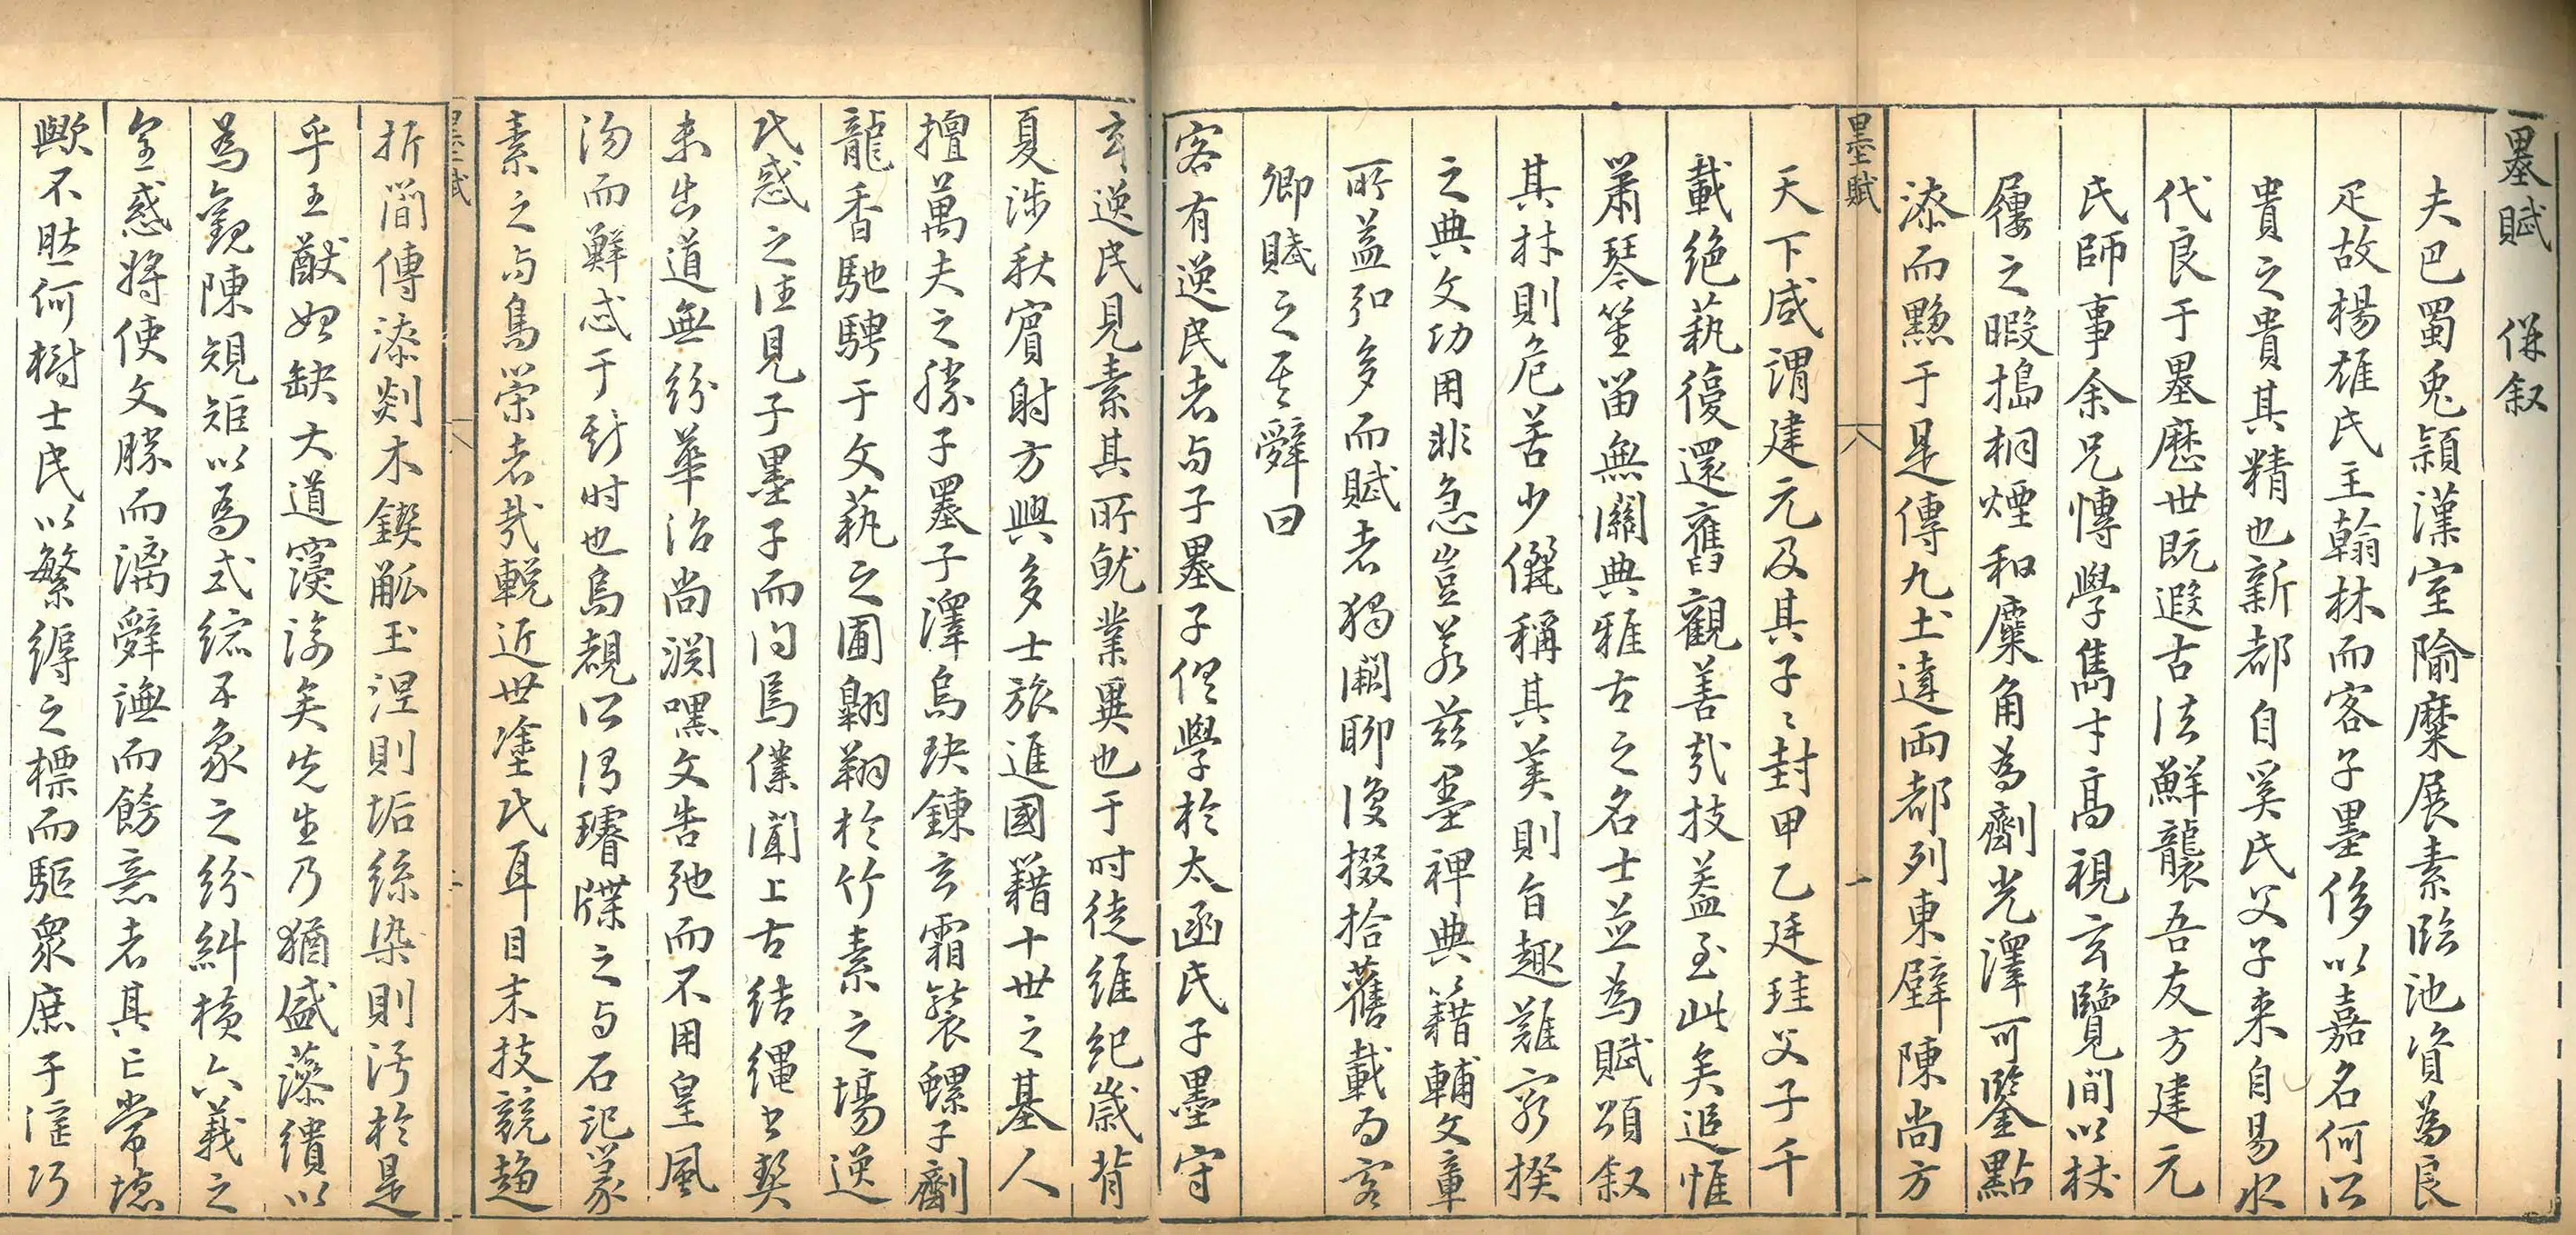 墨賦 併叙
夫巴蜀兎穎漢室隃糜展素臨池資為良
疋故楊雄氏主翰林而客子墨侈以嘉名何以
貴之貴其精也新都自奚氏父子来自易水
代良于墨歷世既遐古法鮮襲吾友方建元
氏師事余兄慱學雋才高視玄覽間以杖
屨之暇搗桐煙和麋角為劑光澤可鑒點
漆而黟于是傳九土達両都列東壁陳尚方
墨賦 一
天下咸謂建元及其子〻封甲乙廷珪父子千
載絶藝復還舊觀善哉技葢至此矣追惟
簫琴笙笛無關典雅古之名士並為賦頌叙
其材則危苦少儷稱其美則旨趣難窮揆
之典文功用非急豈若兹墨裨典籍輔文章
所益弘多而賦者獨闕聊復掇拾舊載為客
卿賦之其辭曰
客有逸民者与子墨子俱學於太函氏子墨守
玄逸民見素其所就業異也于时徒維紀歲背
夏涉秋賓射方興多士旅進國籍十世之基人
擅萬夫之勝子墨子澤烏玦鍊玄霜裝螺子劑
龍香馳騁于文藝之圃翱翔於竹素之場逸
民惑之往見子墨子而问焉僕聞上古結繩書契
未出道無紛華治尚淵嘿文告弛而不用皇風
沕而鮮忒于斯时也烏覩所谓璿牒之与石記篆
素之与鳥策者哉輓近世塗民耳目末技競趨
墨賦 二
折簡傳漆剡木鍥觚玉涅則垢絲染則汚於是
乎王猷始缺大道寖渝矣先生乃猶盛藻繢以
為觀陳規矩以為式綜不象之紛糾横六義之
奎惑將使文勝而漓辭譕而餝意者其亡常德
歟不然何樹士民以繁縟之標而驅衆庶于淫巧